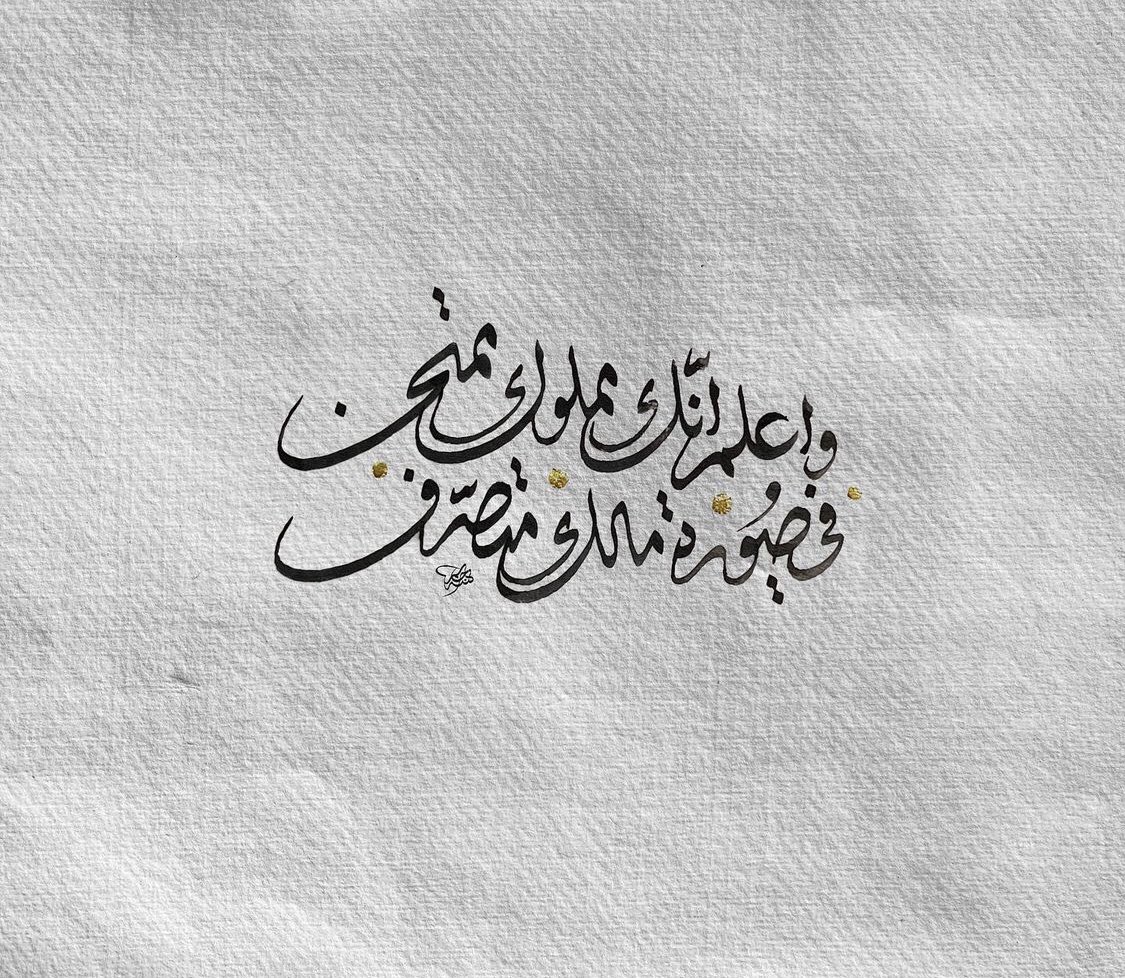 واعلم انّك مملوك ممتحن
في صُورة مالك متصرّف